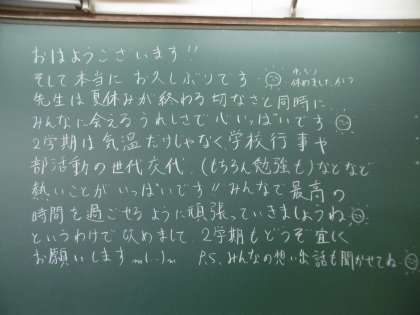 おはようございます!!
そして本当に お久しぶりです 休めましたか?
先生は夏休みが終わる切なさと同時に
みんなに会えるうれしさで心いっぱいです
2学期は気温だけじゃなく学校行事や
部活動の世代交代、(もちろん勉強も)などなど
熱いことがいっぱいです!! みんなで最高の
時間を過ごせるように頑張っていきましょうね
というわけで 改めまして、2学期もどうぞ宜しく
お願いします m(_)m P.S. みんなの想い出話も聞かせてね